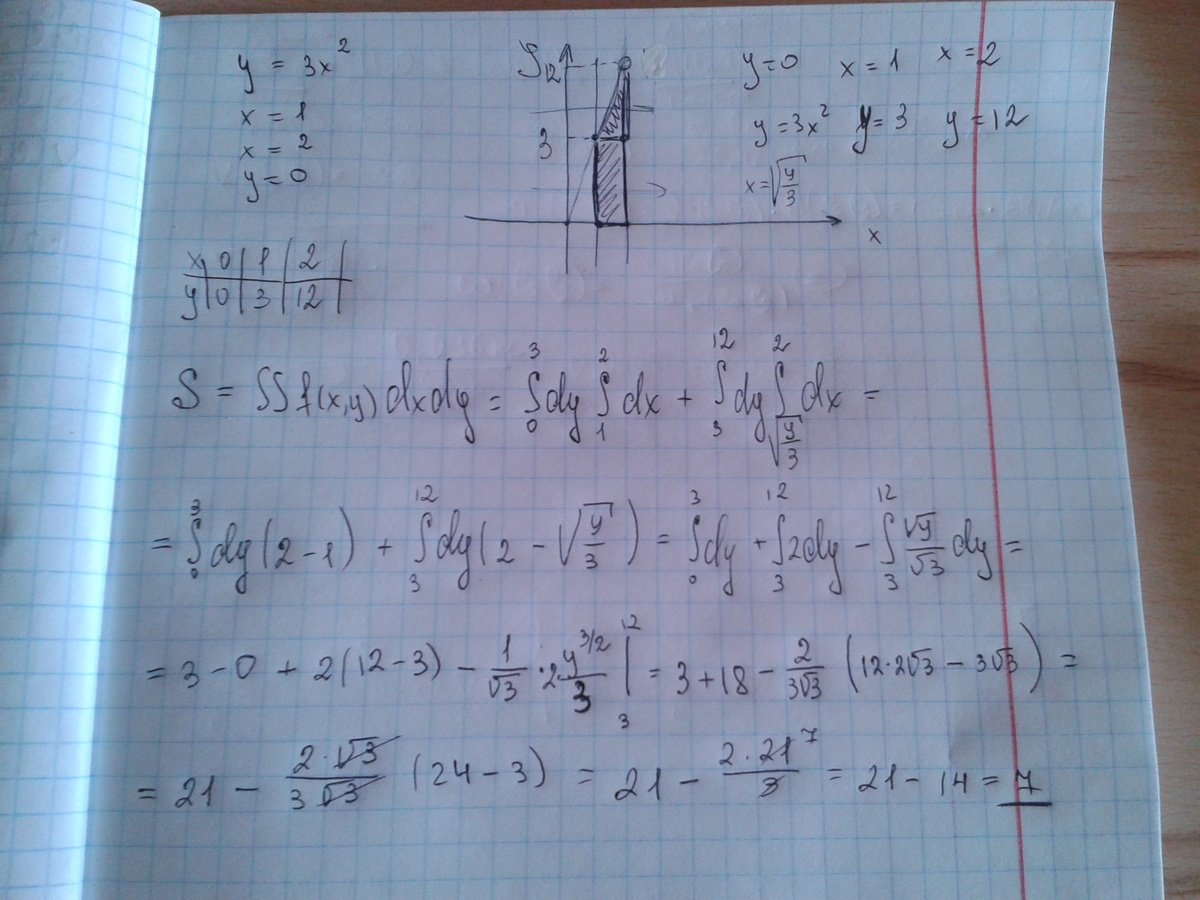 y = 3x²
x = 1
x = 2
y = 0
S 12
3
x
y=0 x=1 x=2
y=3x² y=3 y=12
x=√(y/3)
x | 0 | 1 | 2 |
y | 0 | 3 | 12 |
S = ∫∫ f(x,y) dxdy = ∫₀³ dy ∫₁² dx + ∫₃¹² dy ∫_{√(y/3)}² dx =
= ∫₀³ dy (2-1) + ∫₃¹² dy (2 - √(y/3)) = ∫₀³ dy + ∫₃¹² 2dy - ∫₃¹² √y/√3 dy =
= 3-0 + 2(12-3) - 1/√3 · 2 y^{3/2}/3 |₃¹² = 3+18 - 2/(3√3) (12·2√3 - 3√3) =
= 21 - (2·√3)/(3√3) (24-3) = 21 - (2·21⁷)/3 = 21 - 14 = 7